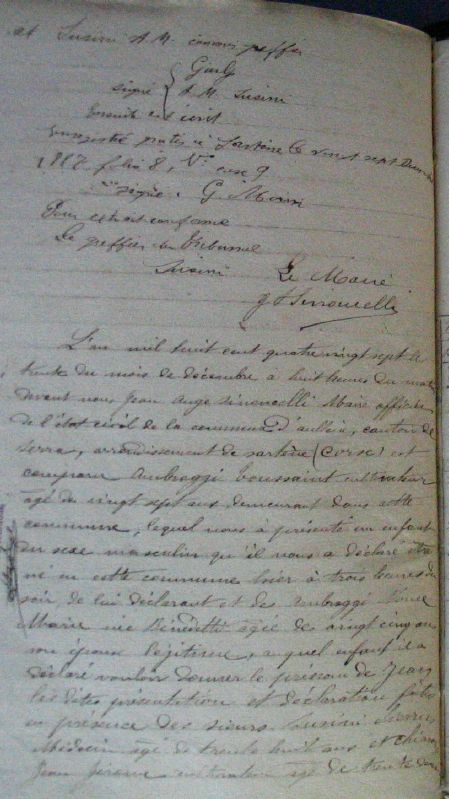 et Susini A. M. commis greffier
signé
A. M. Susini
Ensuite est écrit
Enregistré gratis à Sartène le vingt sept Décembre
1887 folio 8, Vo case 9
signé: G.
Pour extrait conforme
Le greffier du Tribunal
Susini Le Maire
L'an mil huit cent quatre vingt sept le
trente du mois de décembre à huit heures du matin
devant nous Jean Ange Sinoncelli Maire officier
de l'état civil de la commune d'aullène, canton de
serra, arrondissement de sartène (Corse) est
comparu Ambroggi toussaint cultivateur
agé de vingt sept ans, demeurant dans cette
commune, lequel nous à présenté un enfant
du sexe masculin qu'il nous a déclaré être
né en cette commune hier à trois heures du
soir, de lui déclarant et des Ambroggi
Marie née Benedetti agée de vingt cinq ans
son épouse légitime, auquel enfant il a
déclaré vouloir donner le prénom de Jean
les dites présentation et déclaration faites
en présence des sieurs Susini
Médecin agé de trente huit ans et
Jean Jérome agé de trente